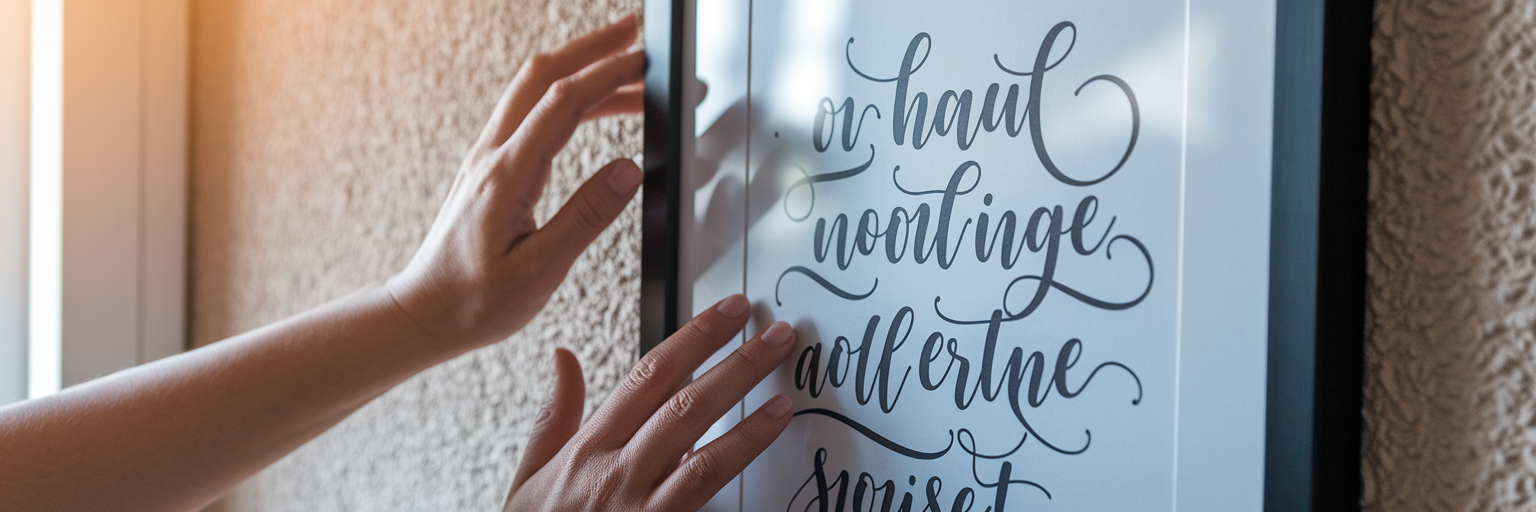 or haul
noolinge
aollertne